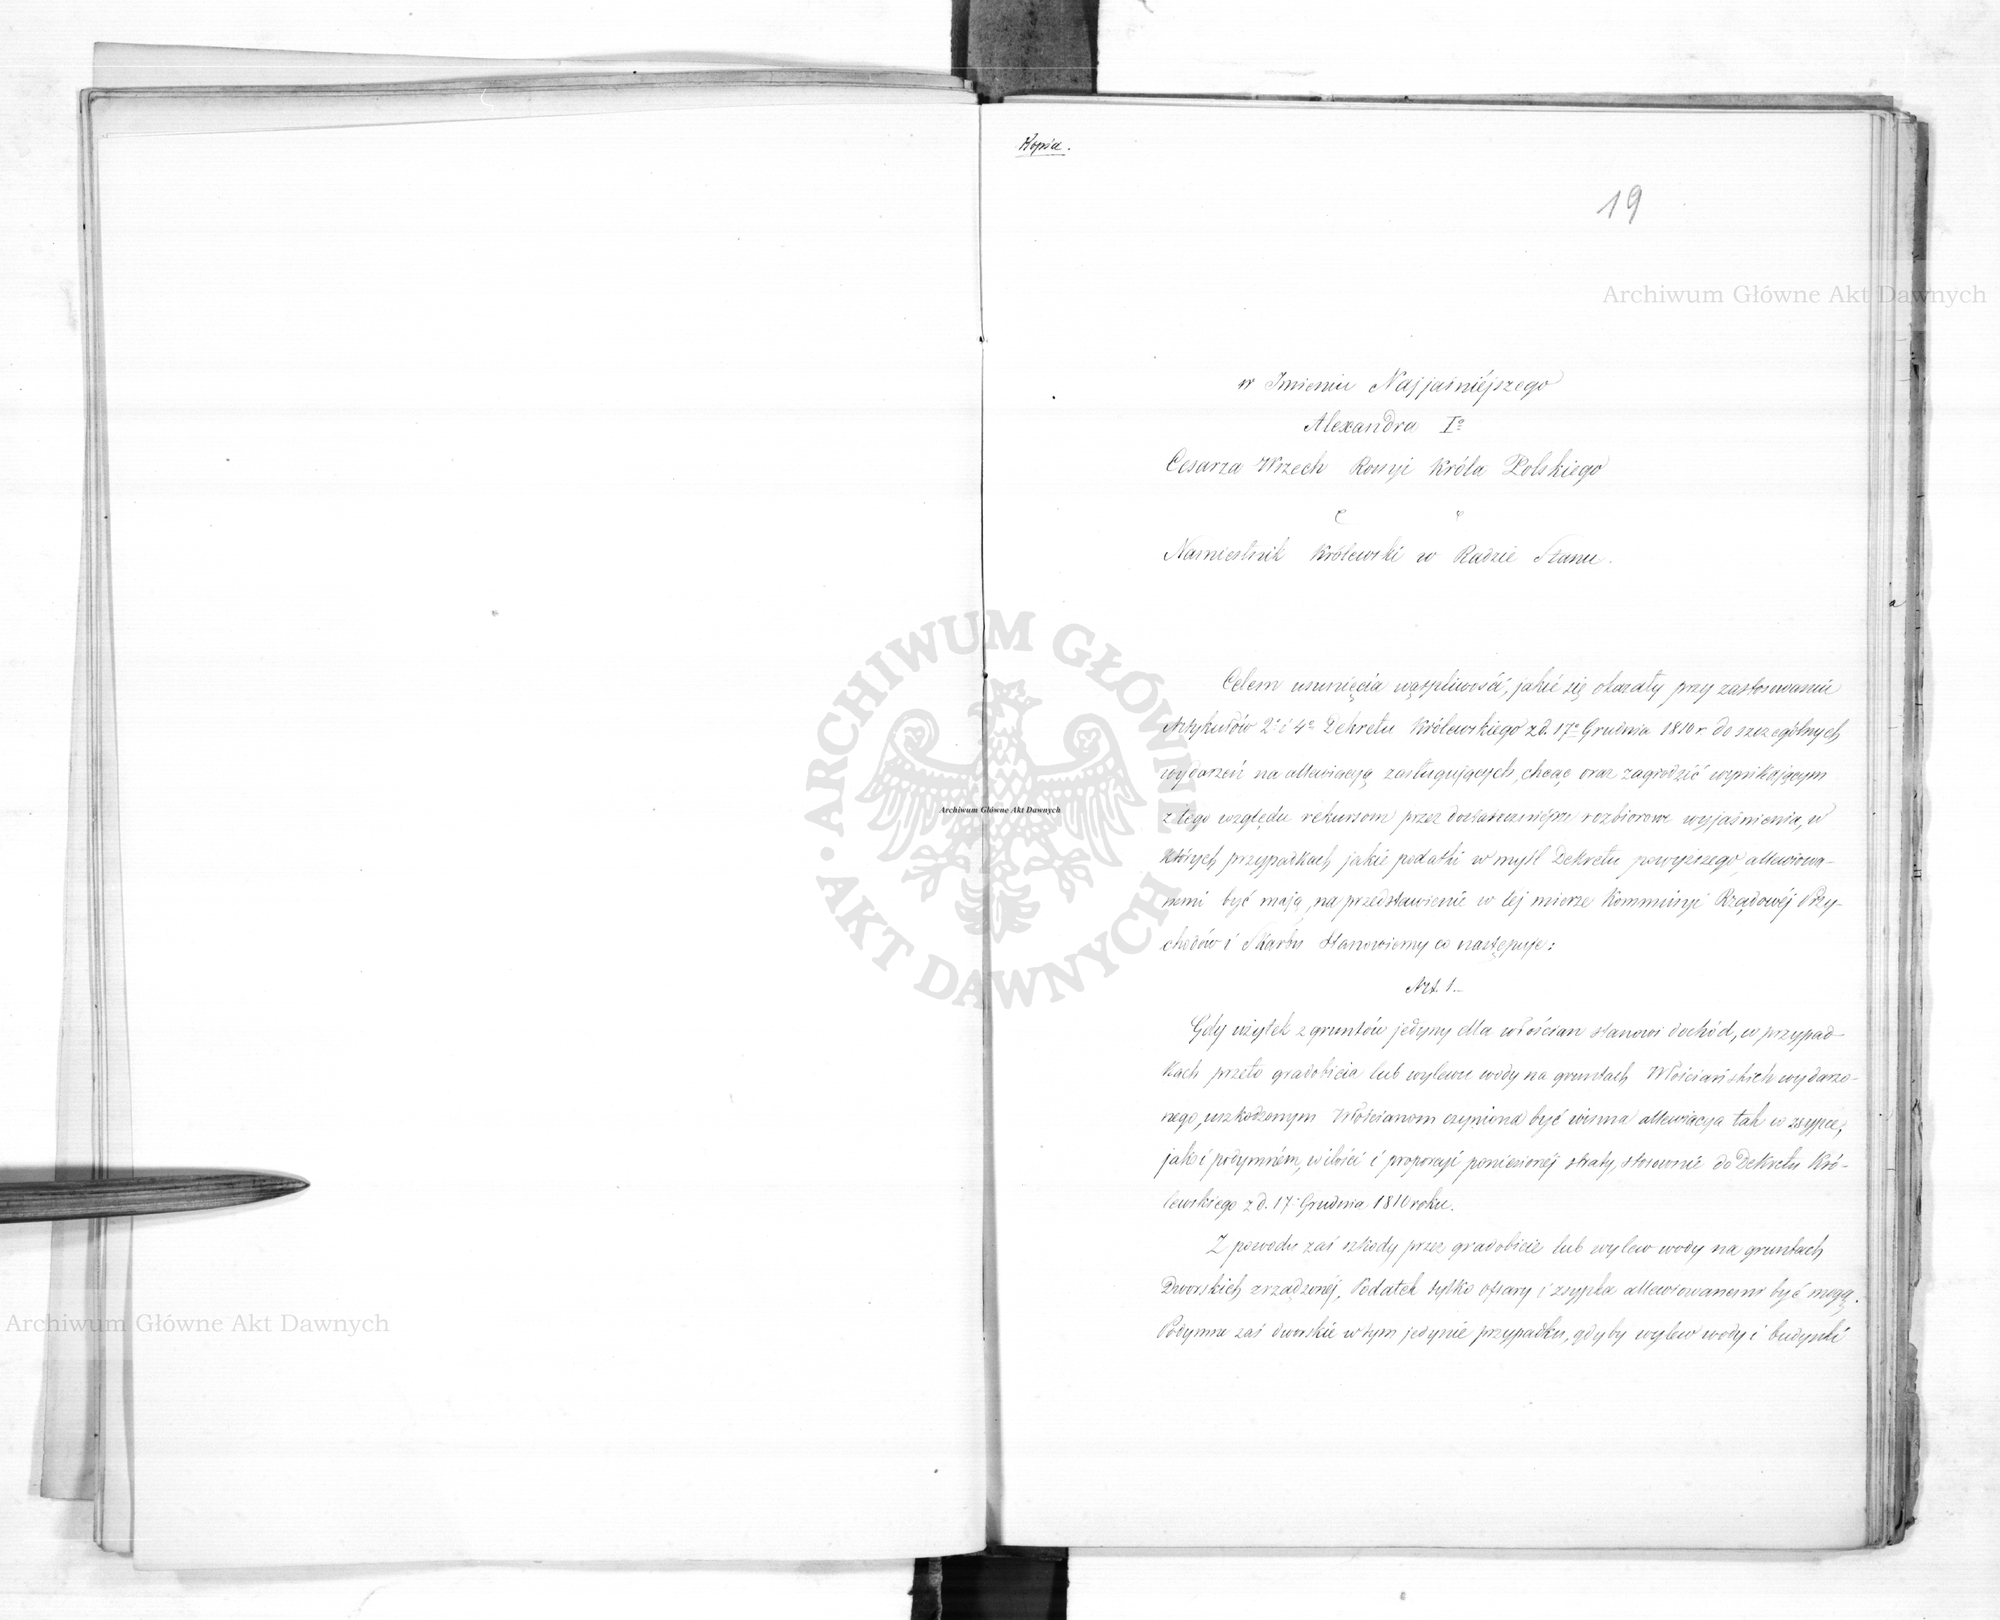 Kopia.
19
Archiwum Główne Akt Dawnych
w Imieniu Najjaśniéjszego
Alexandra I°
Cesarza Wszech Rossyi Króla Polskiego
Namiestnik Królewski w Radzie Stanu.
Celem usunięcia wątpliwości, jakie się okazały przy zastosowaniu
Artykułów 2° i 4° Dekretu Królewskiego z d. 17° Grudnia 1810 r. do szczególnych
wydarzeń na allewiacyą zasługujących, chcąc oraz zagrodzić wynikającym
z tego względu rekursom przez dostateczniéjsze rozbiorowe wyjaśnienia, w
których przypadkach jakie podatki w myśl Dekretu powyższego allewiowa-
nemi być mają, na przedstawienie w téj mierze Kommissyi Rządowéj Przy-
chodów i Skarbu Stanowiemy co następuje:
Art. 1.
Gdy użytek z gruntów jedyny dla włościan stanowi dochód, w przypad-
kach przeto gradobicia lub wylewu wody na gruntach Włościańskich wydarzo-
nego, uszkodzonym Włościanom czyniona być winna allewiacya tak w zsypce,
jak i podymném, w ilości i proporcyi poniesionéj straty, stosownie do Dekretu Kró-
lewskiego z d. 17° Grudnia 1810 roku.
Z powodu zaś szkody przez gradobicie lub wylew wody na gruntach
Dworskich zrządzonéj, Podatek tylko ofiary i zsypka allewiowanemi być mogą.
Podymne zaś dworskie w tym jedynie przypadku, gdyby wylew wody i budynki
ARCHIWUM GŁÓWNE AKT DAWNYCH
Archiwum Główne Akt Dawnych
Archiwum Główne Akt Dawnych